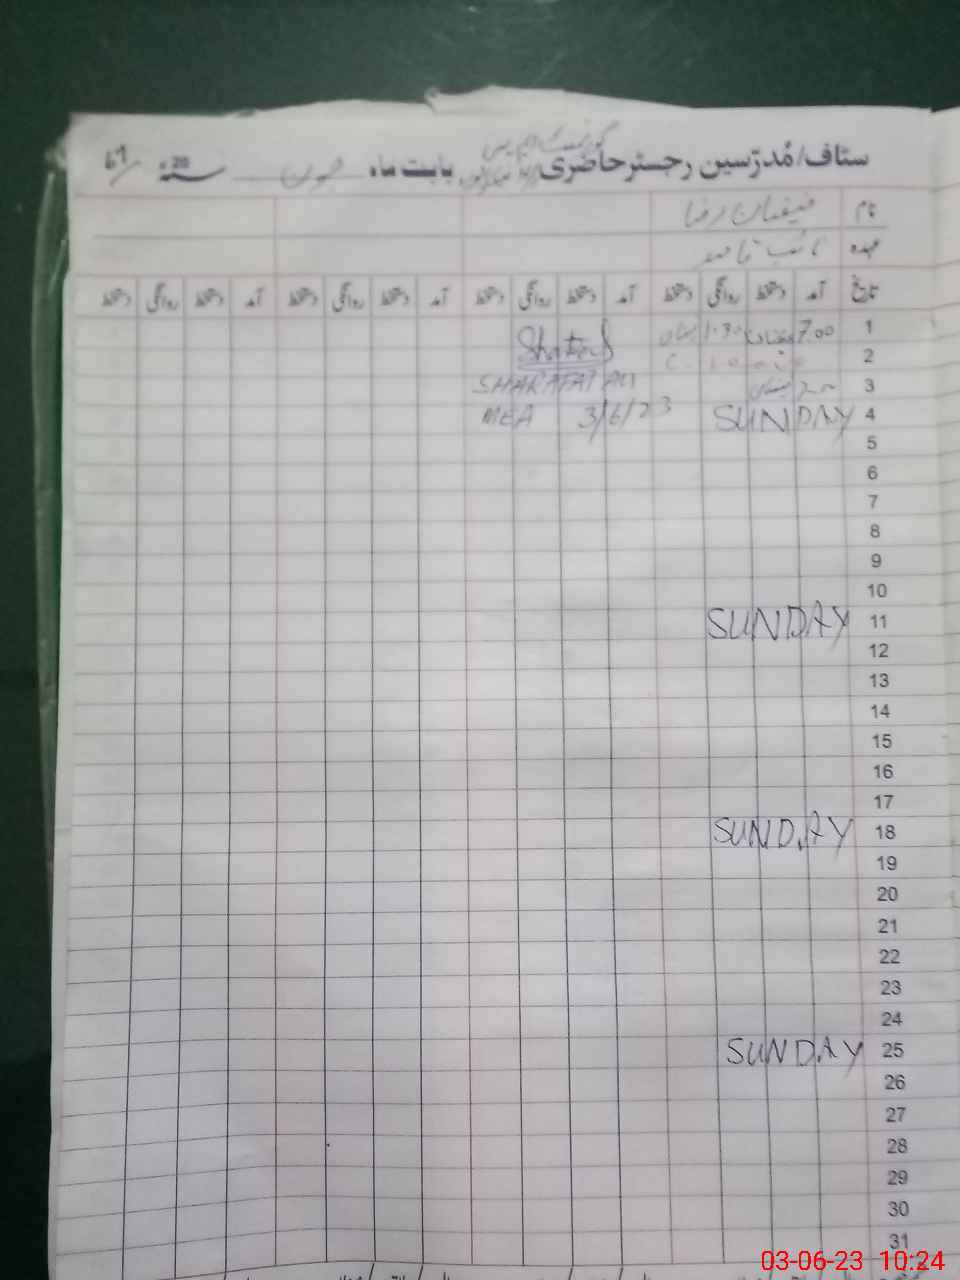 گورنمنٹ
سٹاف/مُدرّسین رجسٹر حاضری بابت ماہ جون سنہ 20ء
نام فیضان رضا
عہدہ نائب قاصد
تاریخ آمد دستخط روانگی دستخط آمد دستخط روانگی دستخط آمد دستخط روانگی دستخط آمد دستخط روانگی دستخط
1 7.00 فیضان 1.30 فیضان
2
3 فیضان SHARAFAT ALI
4 SUNDAY 3/6/23 MEA
5
6
7
8
9
10
11 SUNDAY
12
13
14
15
16
17
18 SUNDAY
19
20
21
22
23
24
25 SUNDAY
26
27
28
29
30
31
03-06-23 10:24